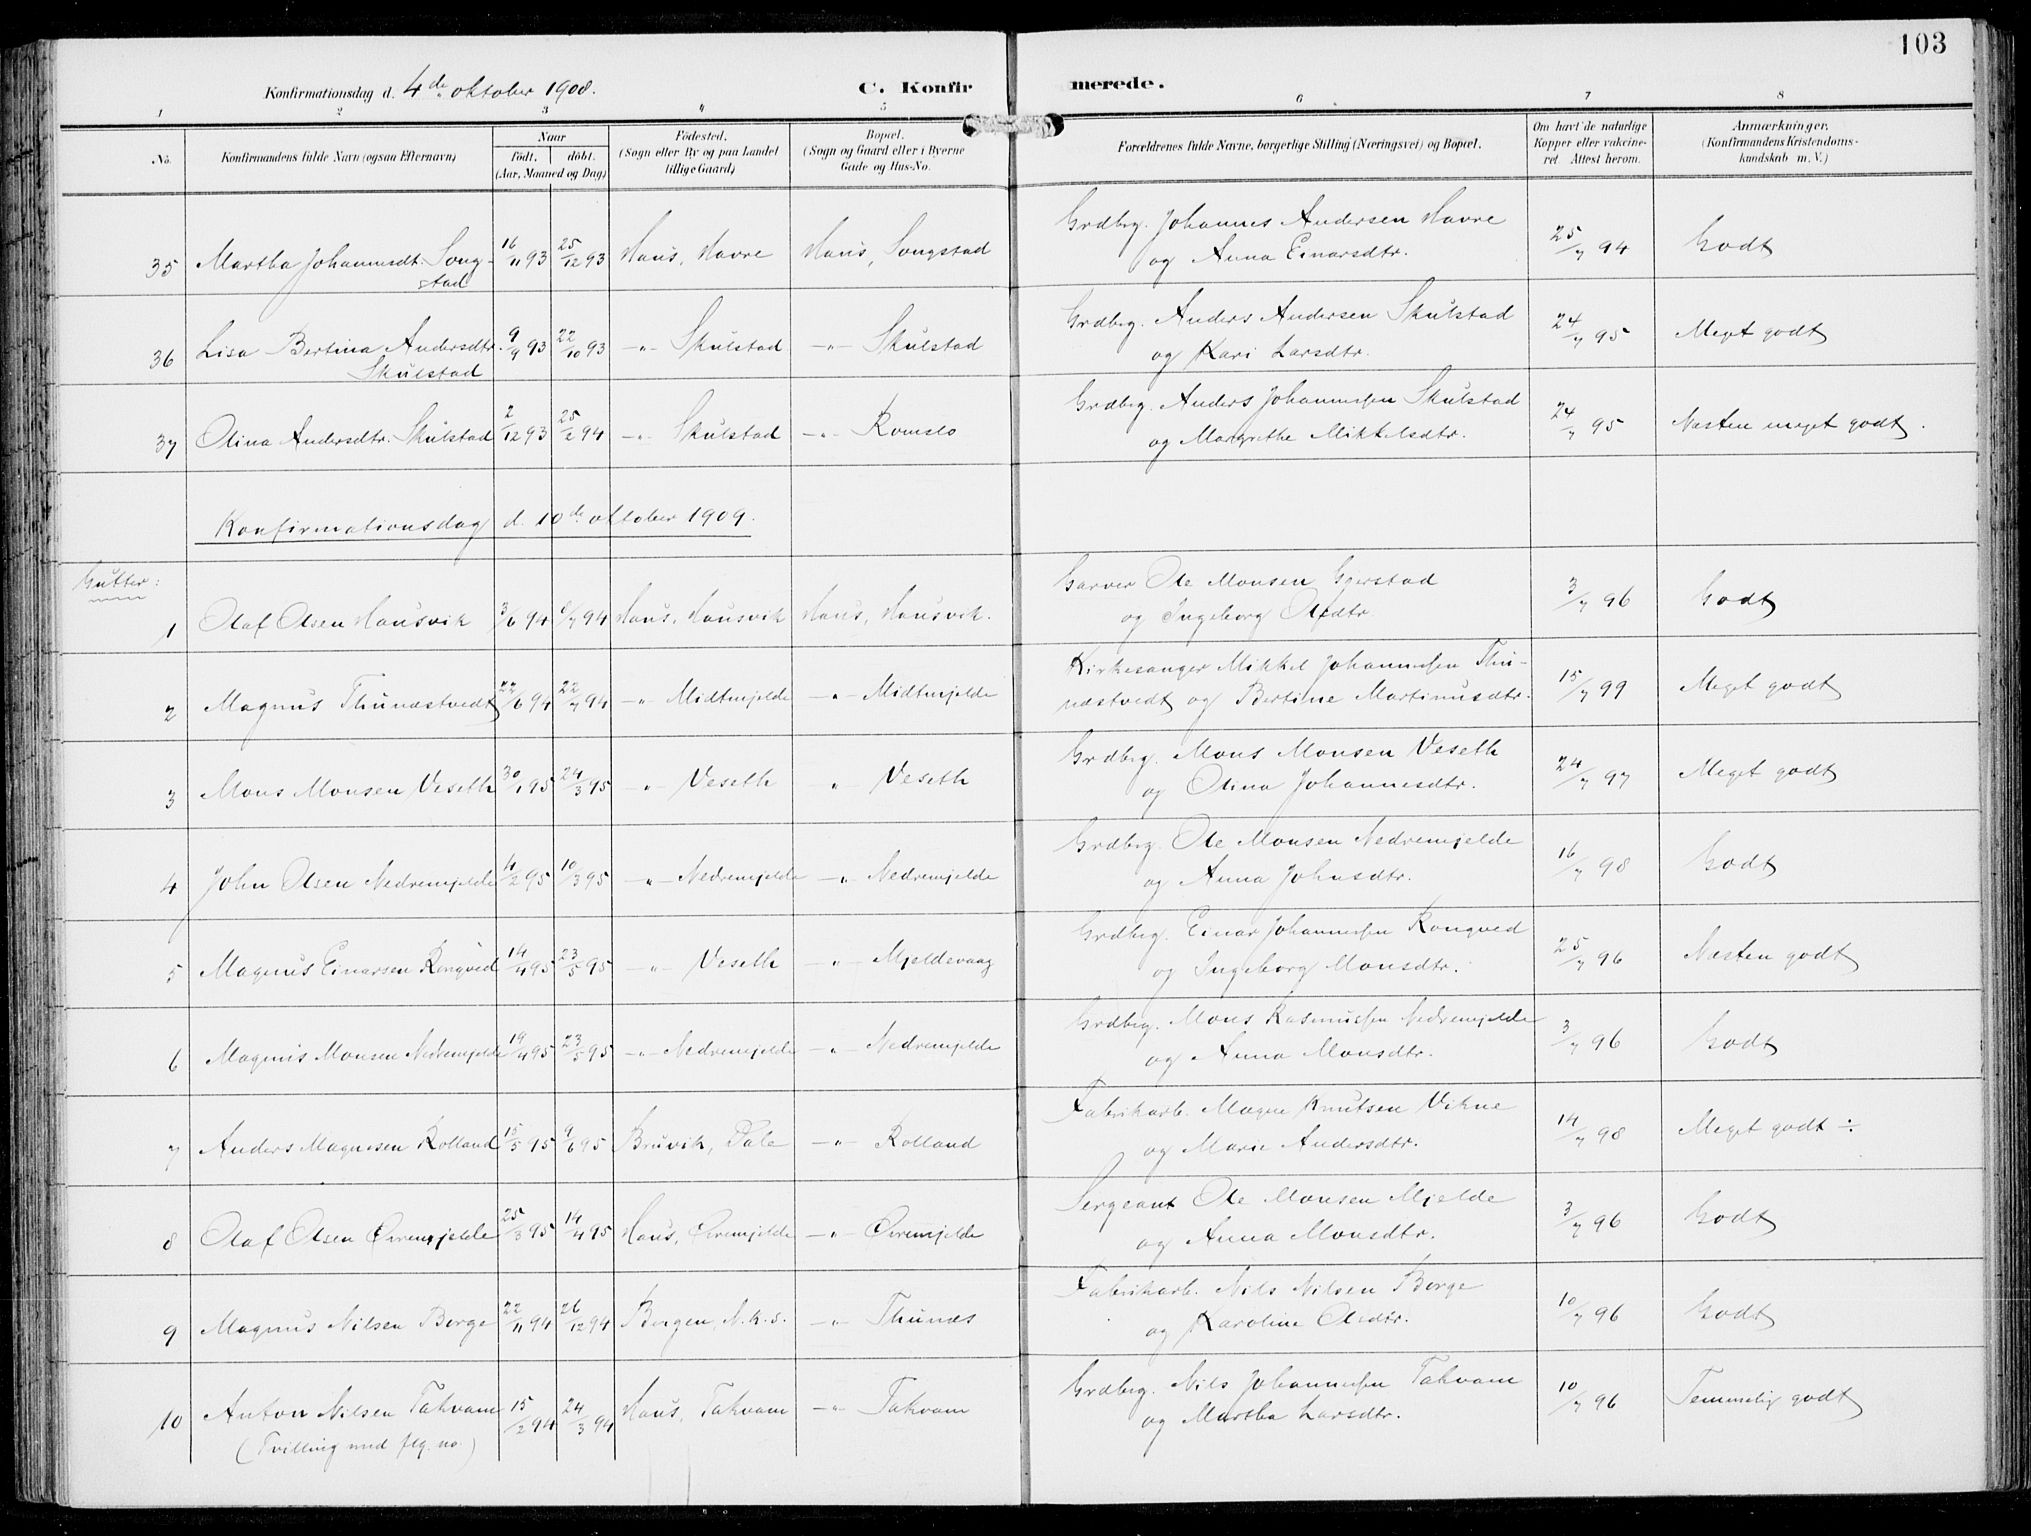 103
Konfirmationsdag d. 4de oktober 1908.
C. Konfirmerede.
1 2 3 4 5 6 7 8
No. Konfirmandens fulde Navn (ogsaa Efternavn) Naar født, døbt. (Aar, Maaned og Dag) Fødested. (Sogn eller By og paa Landet tillige Gaard) Bopæl. (Sogn og Gaard eller i Byerne Gade og Hus-No. Forældrenes fulde Navne, borgerlige Stilling (Næringsvei) og Bopæl. Om havt de naturlige Kopper eller vakcineret Attest herom. Anmærkninger. (Konfirmandens Kristendomskundskab m. V.)
35 Martha Johannesdt. Songstad 16/11 93 25/12 93 Haus, Havre Haus, Songstad Grdbrg. Johannes Andersen Havre og Anna Einarsdtr. 25/7 94 Godt
36 Lisa Bertina Andersdtr. Skulstad 9/9 93 22/10 93 -"- Skulstad -"- Skulstad Grdbrg. Anders Andersen Skulstad og Kari Larsdtr. 24/7 95 Meget godt
37 Olina Andersdtr. Skulstad 2/12 93 25/2 94 -"- Skulstad -"- Romslo Grdbrg. Anders Johannessen Skulstad og Margrethe Mikkelsdtr. 24/7 95 Næsten meget godt.
Konfirmationsdag d. 10de oktober 1909.
Gutter:
1 Olaf Olsen Hausvik 3/6 94 /7 94 Haus, Hausvik Haus, Hausvik. Garver Ole Monsen Gjerstad og Ingeborg Olsdtr. 3/7 96 Godt
2 Magnus Thunæstvedt 22/6 94 22/7 94 -"- Midtmjelde -"- Midtmjelde Kirkesanger Mikkel Johannessen Thunæstvedt og Bertine Martinusdtr. 15/7 99 Meget godt
3 Mons Monsen Veseth 30/1 95 24/3 95 -"- Veseth " Veseth Grdbrg. Mons Monsen Veseth og Olina Johannesdtr. 24/7 97 Meget godt
4 John Olsen Nedremjelde 4/2 95 10/3 95 -"- Nedremjelde -"- Nedremjelde Grdbrg. Ole Monsen Nedremjelde og Anna Johnsdtr. 16/7 98 Godt
5 Magnus Einarsen Rongved 14/4 95 23/5 95 -"- Veseth -"- Mjeldevaag Grdbrg. Einar Johannessen Rongved og Ingeborg Monsdtr. 25/7 96 Næsten godt
6 Magnus Monsen Nedremjelde 19/4 95 23/5 95 -"- Nedremjelde -"- Nedremjelde Grdbrg. Mons Rasmussen Nedremjelde og Anna Monsdtr. 3/7 96 Godt
7 Anders Magnesen Rolland 15/5 95 9/6 95 Bruvik, Dale -"- Rolland Fabrikarb. Magne Knutsen Vikne og Marie Andersdtr. 14/7 98 Meget godt ÷
8 Olaf Olsen Øvremjelde 25/3 95 14/4 95 Haus, Øvremjelde -"- Øvremjelde Sergeant Ole Monsen Mjelde og Anna Monsdtr. 3/7 96 Godt
9 Magnus Nilsen Borge 22/11 94 26/12 94 Bergen, N.k.s. -"- Thunæs Fabrikarb. Nils Nilsen Borge og Karoline Olsdtr. 10/7 96 Godt
10 Anton Nilsen Takvam (Tvilling med flg. no.) 15/2 94 24/3 94 Haus, Takvam -"- Takvam Grdbrg. Nils Johannessen Takvam og Martha Larsdtr. 10/7 96 Temmelig godt